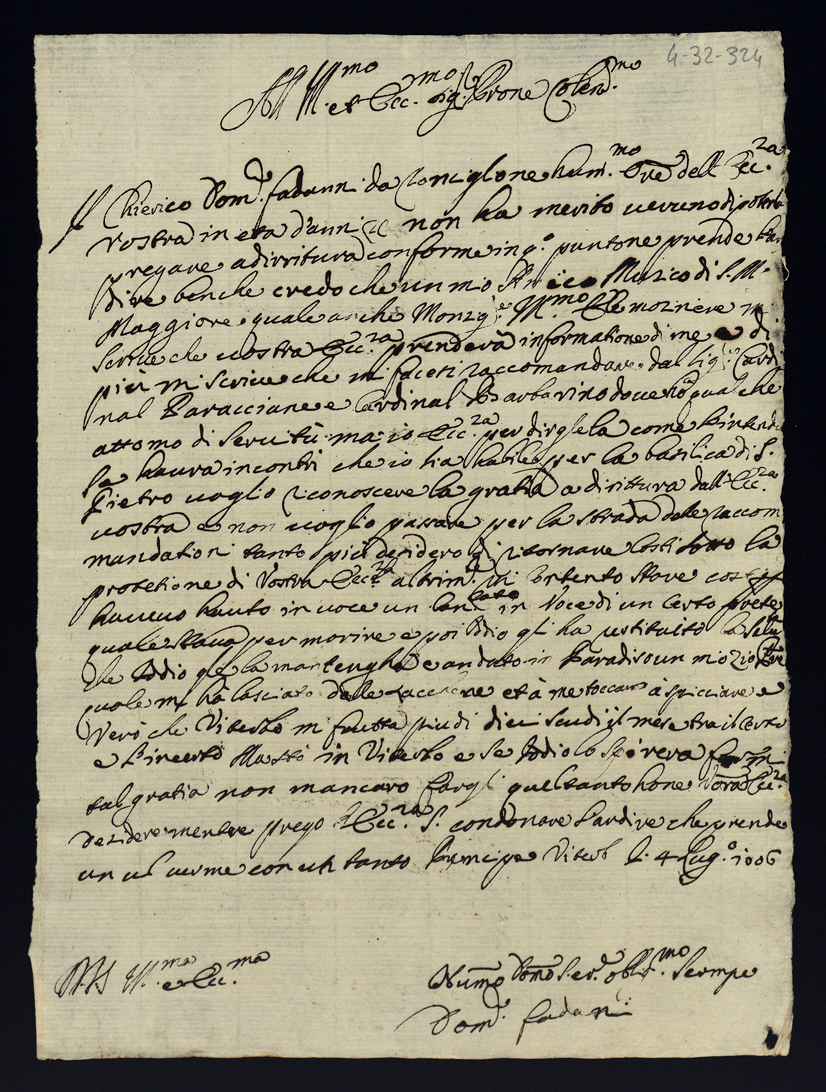 4-32-324
All Ill.mo et Ecc.mo Sig.r Prone Colen.mo
Il Chierico Dom.co Fadanni da Ronciglone hum.mo Ore dell Ecc.za
Vostra in eta d'anni 22 non ha merito veruno di poterla
pregare a dirritura conforme in q.o puntone prende
dire benche credo che un mio Amico Musico di S. M.
Maggiore quale anche Monzg.r Ill.mo
Scrive che vostra Ecc.za prenderà informatione di me e di
più mi scrive che mi faceti raccomandare dal Sig.r Cardi
nal Paracciane e Cardinal Barbarino dove ho qualche
attomo di servitù ma io Ecc.za per dirgle la come l'intendo
Se havra incontri che io sia habile per la basilica di S.
Pietro voglio riconoscere la gratia a dirittura dall Ecc.za
vostra e non voglio passare per la strada dele raccom
mandationi tanto più desidero di ritornare costi sotto la
protetione di Vostra Ecc.za altrim.te mi contento stare così
havevo hauto in voce un in Voce di un Certo prete
quale stava per morire e poi Iddio gli ha restituito la Salu
che Iddio gle la mantengha e andato in Paradiso un mio Zio
quale mi ha lasciato delle facende et à me toccano à spicciare e
Vero che Viterbo mi frutta più di dieci scudi il mese tra il certo
e l'incerto Ma stò in Viterbo e se Iddio lo spirera
tal gratia non mancaro fargli quel tanto Vostra Ecc.za
desidere mentre prego Ecc.za S. condonare l'ardire che prende
un vil verme con un tanto Principe Viterb li 4 Lug.o 1706
D.V.S Ill.ma et Ecc.ma
Humo Devmo Ser.e obl.mo Sempe
Dom.co Fadanni